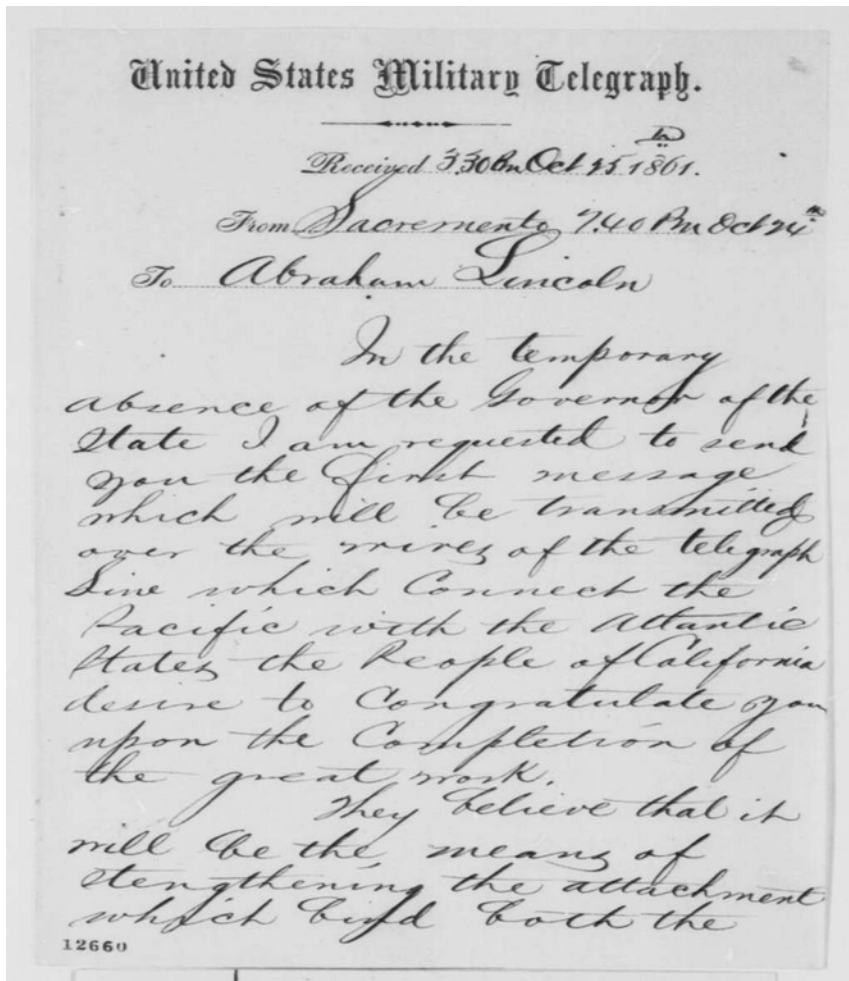 United States Military Telegraph.
Received 3.30 Pm Oct 25 1861.
From Sacremento 7.40 Pm Oct 24th
To Abraham Lincoln
In the temporary
absence of the Governor of the
State I am requested to send
you the first message
which will be transmitted
over the wires of the telegraph
Line which Connect the
Pacific with the Atlantic
States the People of California
desire to Congratulate you
upon the Completion of
the great work.
They believe that it
will be the means of
stengthening the attachment
which bind both the
12660